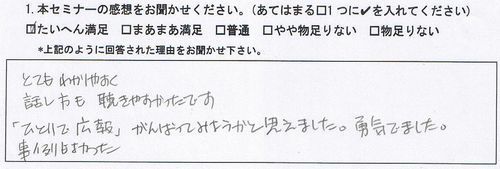 1. 本セミナーの感想をお聞かせください。（あてはまる□1つに✔を入れてください）
☑たいへん満足 □まあまあ満足 □普通 □やや物足りない □物足りない
*上記のように回答された理由をお聞かせ下さい。
とてもわかりやすく
話し方も 聴きやすかったです
「ひとりで広報」がんばってみようかと思えました。勇気でました。
事例もよかった